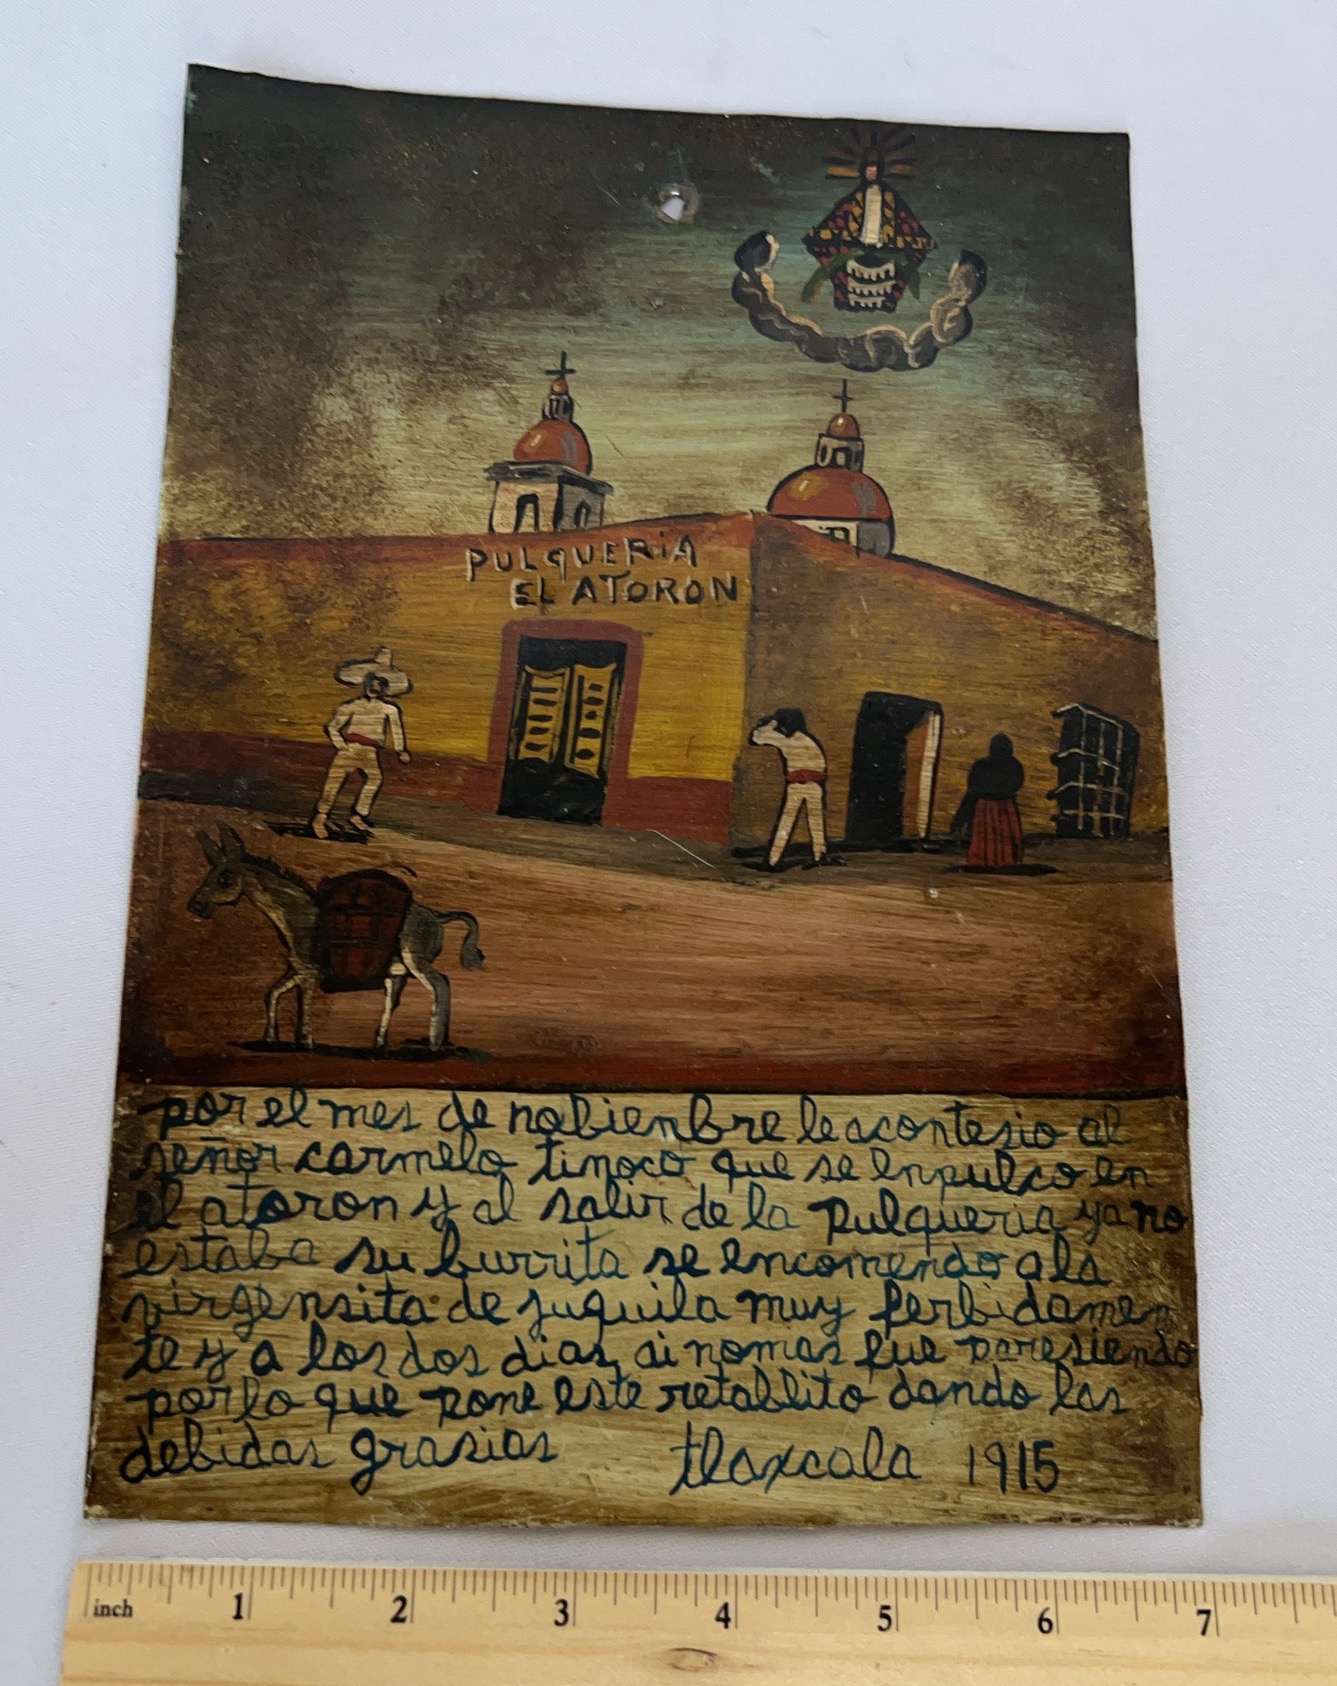 PULQUERiA
EL ATORON
por el mes de nobienbre le acontesio al
señor carmelo tinoco que se enpulco en
el atoron y al salir de la pulqueria ya no
estaba su burrita se encomendo a la
virgensita de juquila muy ferbidamen
te y a los dos dias ai nomas fue paresiendo
por lo que pone este retablito dando las
debidas grasias tlaxcala 1915
inch 1 2 3 4 5 6 7